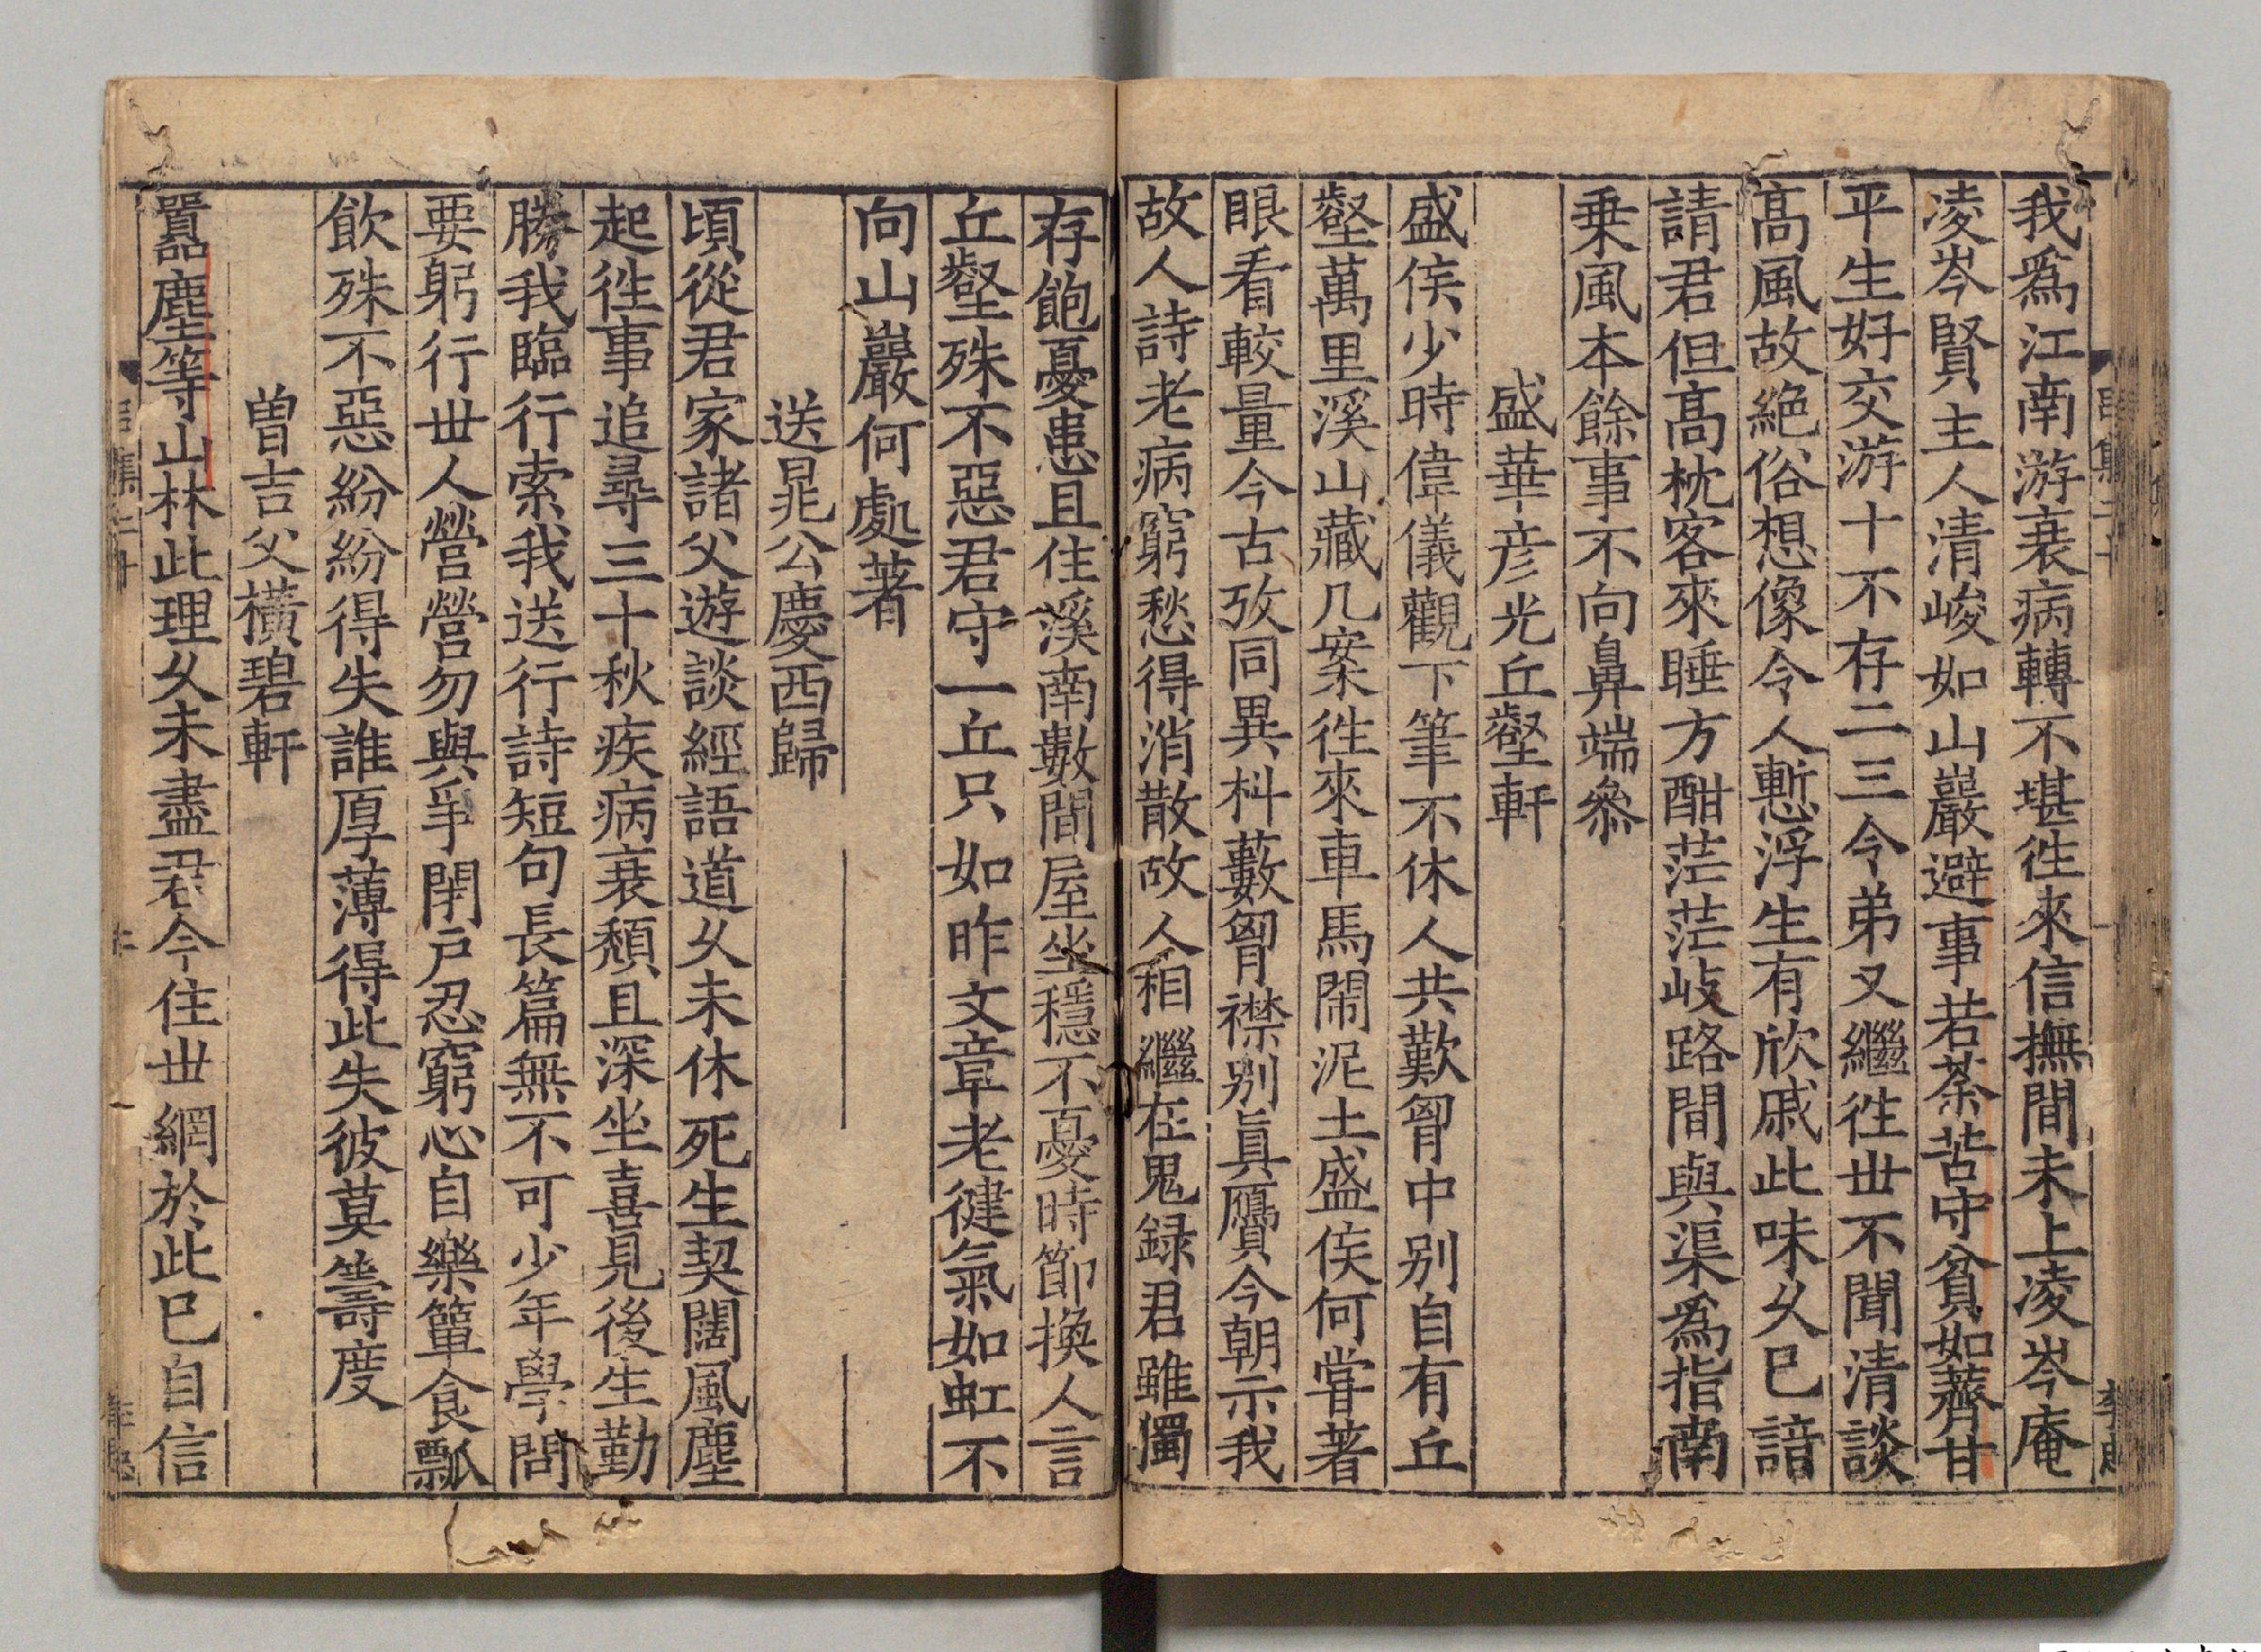 我爲江南游衰病轉不堪徃來信撫間未上凌岑庵
凌岑賢主人清峻如山巖避事若荼苦守貧如薺甘
平生好交游十不存二三令弟又繼徃丗不聞清談
髙風故絶俗想像令人慙浮生有欣戚此味久巳諳
請君但髙枕客來睡方酣茫茫岐路間與渠爲指南
乗風本餘事不向鼻端叅
盛華彦光丘壑軒
盛侯少時偉儀觀下筆不休人共歎胷中别自有丘
壑萬里溪山藏几案徃來車馬閙泥土盛侯何甞著
眼看較量今古攷同異枓藪胷襟别眞贗今朝示我
故人詩老病窮愁得消散故人相繼在鬼録君雖獨
存飽憂患且住溪南數間屋坐穩不憂時節換人言
丘壑殊不惡君守一丘只如昨文章老徤氣如虹不
向山巖何處著
送晁公慶西歸
頃從君家諸父遊談經語道久未休死生契闊風塵
起徃事追尋三十秋疾病衰頹且深坐喜見後生勤
勝我臨行索我送行詩短句長篇無不可少年學問
要躬行丗人營營勿與爭閉戸忍窮心自樂簞食瓢
飲殊不惡紛紛得失誰厚薄得此失彼莫籌度
曽吉父横碧軒
嚚塵等山林此理久未盡君今住丗網於此巳自信